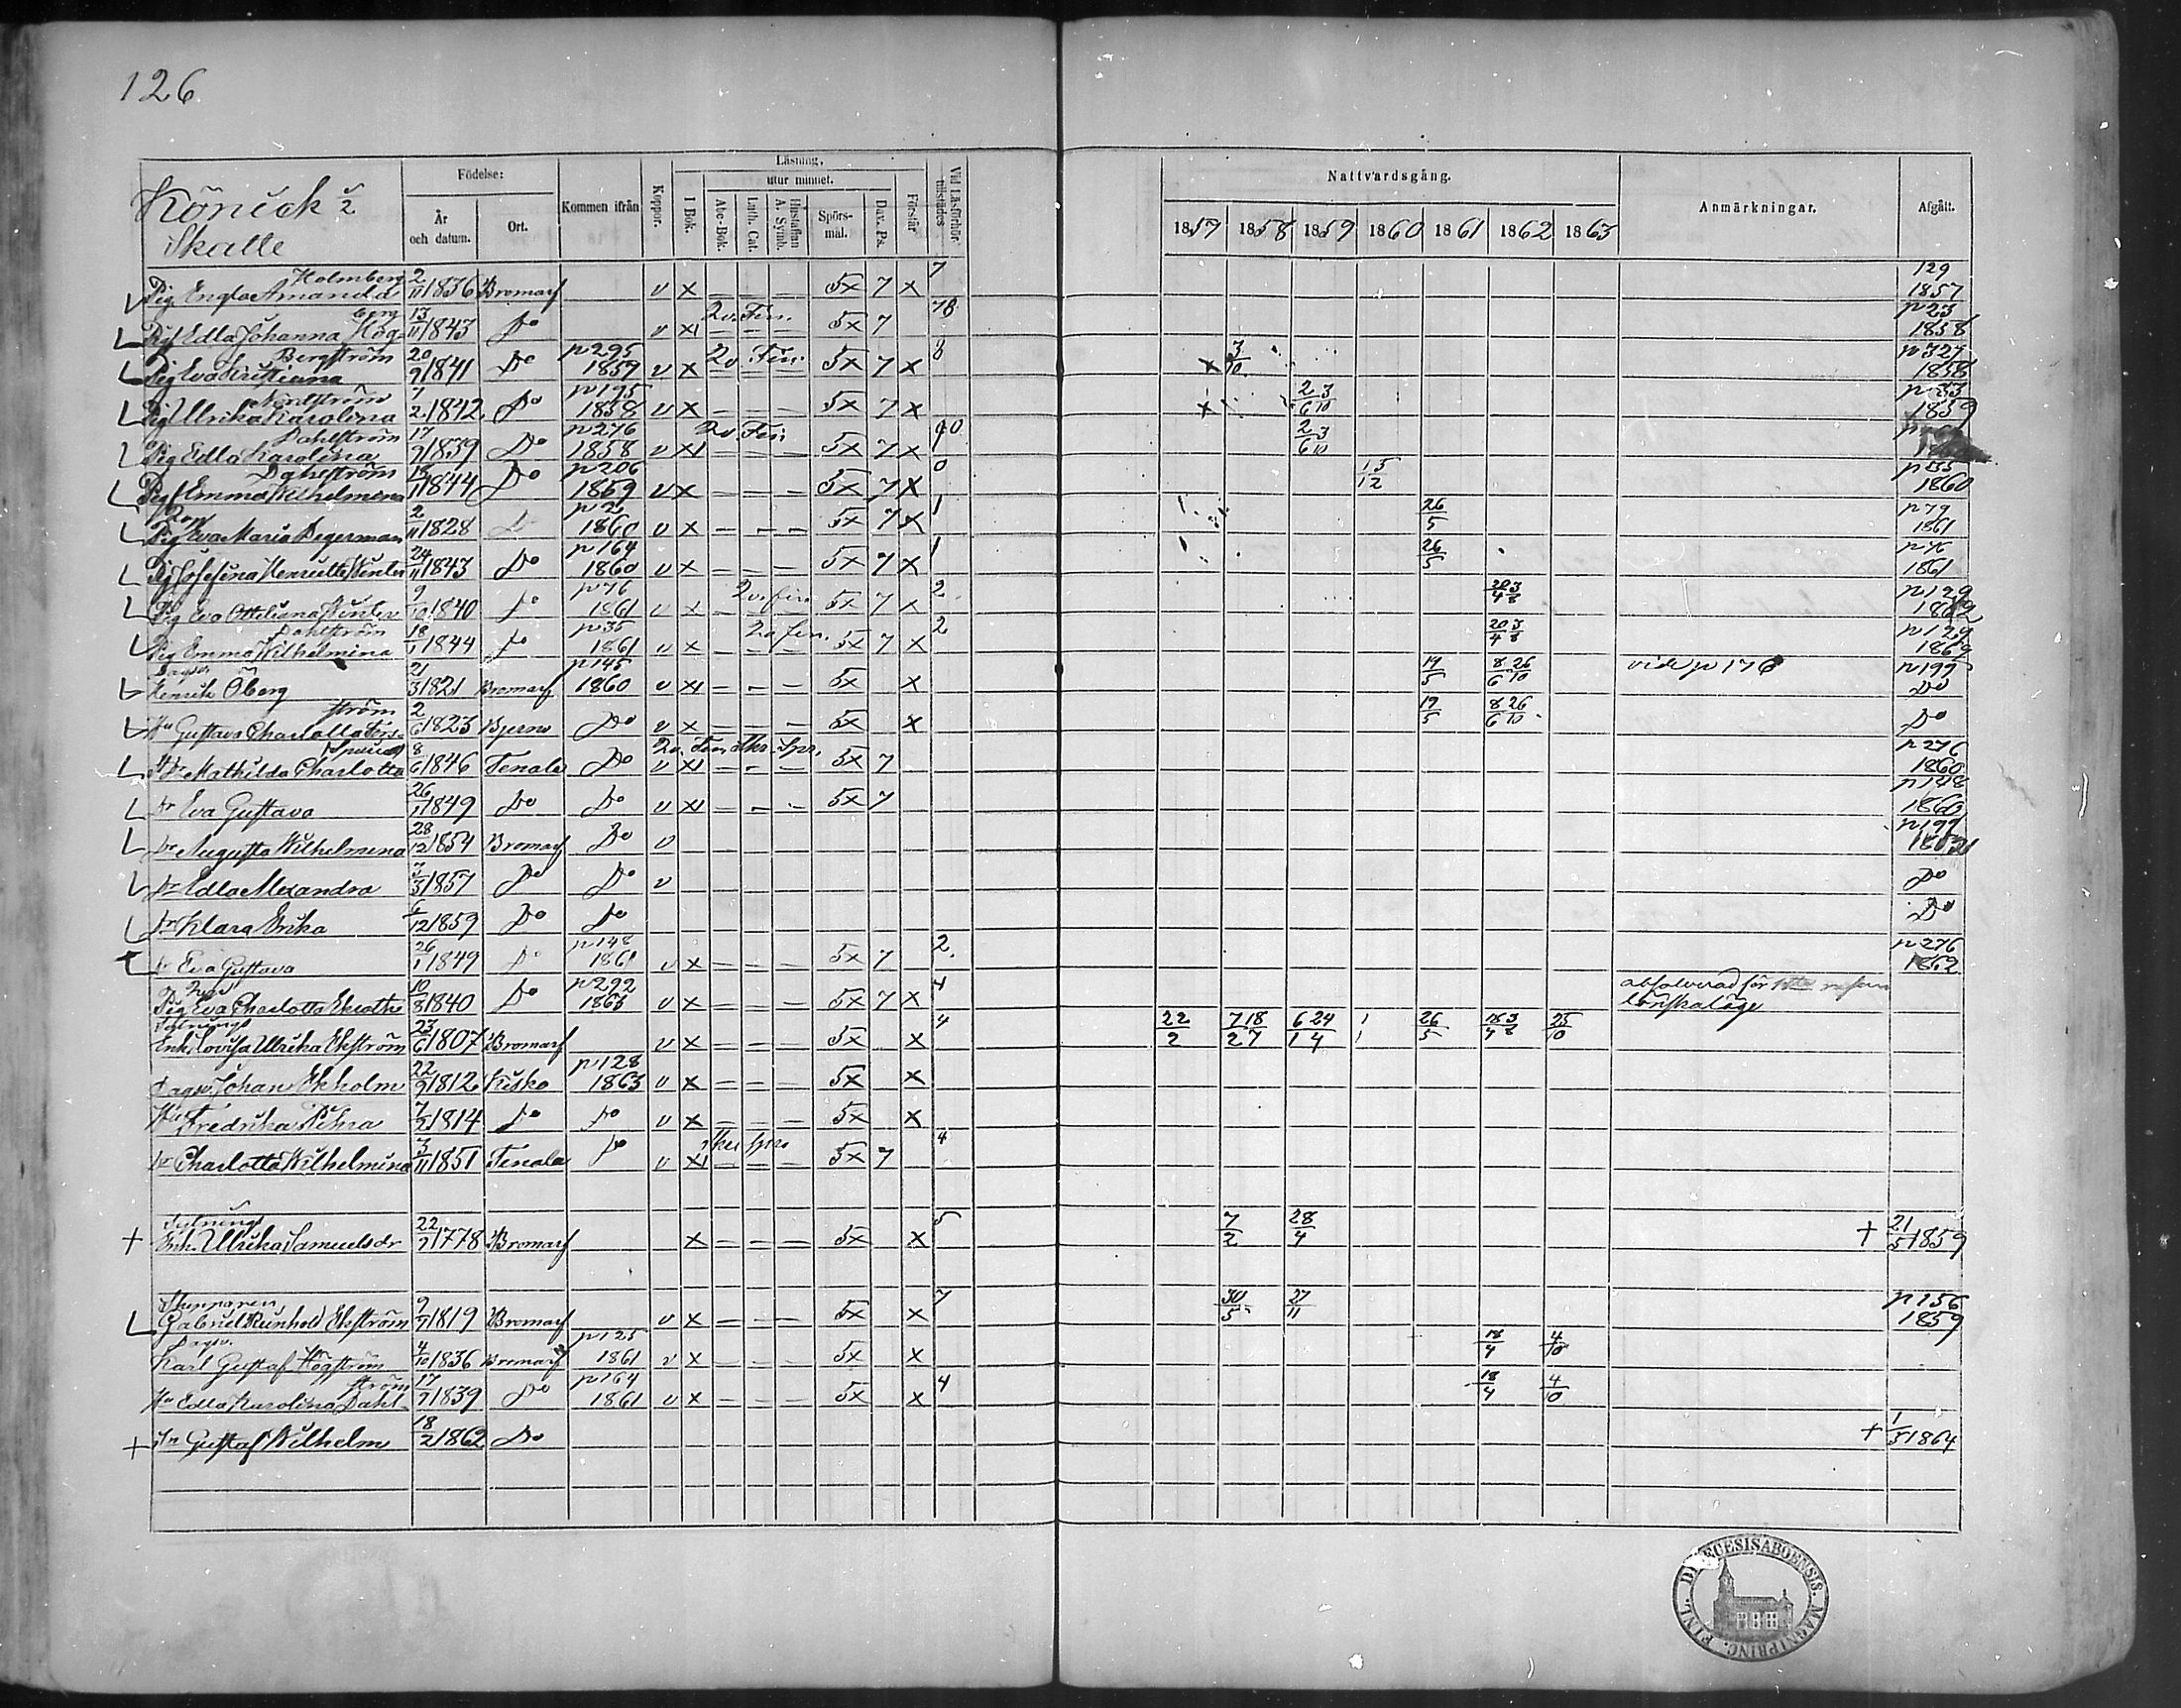 126
Könick 2
Skatte
Födelse:
År och datum.
Ort.
Kommen ifrån
Koppor.
Läsning.
I Bok.
utur minnet.
Abc-Bok.
Luth. Cat.
Hustaflan A. Symb.
Spörs-mål.
Dav. Ps.
Förstår
Vid Läsförhör tillstädes
Nattvardsgång.
1857 1858 1859 1860 1861 1862 1863
Anmärkningar.
Afgått.
Pig. Engla Amanda Holmberg 2/11 1836 Bromarf v x — — — 5x 7 x 7 129 1857
Pig. Edla Johanna Högberg 13/11 1843 Do v x 2v. Fin. 5x 7 78 p 23 1858
Pig Eva Kristiana Bergström 20/9 1841 Do p 295 1857 v x 2v. Fin. 5x 7 x 8 3/10 p 327 1858
Pig Ulrika Karolina Nordström 7/2 1842 Do p 195 1858 v x — — — 5x 7 x 23/610 p 33 1859
Pig Edla Karolina Dahlström 17/9 1839 Do p 276 1858 v x 2v Fin 5x 7 x 23/610
Pig Emma Wilhelmina Dahlström 18/1 1844 Do p 206 1859 v x — — — 5x 7 x 0 15/12 p 35 1860
Pig Eva Maria Degerman 2/11 1828 Do p 2 1860 v x — — — 5x 7 x 1 26/5 p 79 1861
Pig Josefina Henriette Winter 24/11 1843 Do p 164 1860 v x — — — 5x 7 x 1 26/5 p 76 1861
Pig Eva Ottiliana Winter 9/10 1840 Do p 76 1861 v x 2v. fin. 5x 7 x 2 20 3/4 8 p 129 1862
Pig Emma Wilhelmina Dahlström 18/1 1844 Do p 35 1861 v x 2v fin. 5x 7 x 2 20 3/4 8 p 129 1862
Dagsv. Henrik Öberg 21/3 1821 Bromarf p 145 1860 v x — — — 5x x 19/5 8 26/6 10 vide p 176 p 199 Do
Hu Gustava Charlotta Forsström 2/6 1823 Bjerno Do v x — — — 5x x 19/5 8 26/6 10 Do
Dr Mathilda Charlotta 8/6 1846 Tenala Do v x 2v. Fin. 5x 7 p 276 1860
Dr Eva Gustava 26/1 1849 Do Do v x — — — 5x 7 p 148 1860
Dr Augusta Wilhelmina 28/12 1854 Bromarf Do v p 199
Dr Edla Alexandra 7/3 1857 Do Do v Do
Dr Klara Erika 6/12 1859 Do Do Do
Dr Eva Gustava 26/1 1849 Do p 148 1861 v x — — — 5x 7 2. p 276 1862
Pig Eva Charlotta 10/8 1840 Do p 292 1863 v x — — — 5x 7 x 4 absolverad för
lönskaläge
Sytnings
Enk. Lovisa Ulrika Ekström 23/6 1807 Bromarf v x — — — 5x x 4 22/2 7 18/2 7 6 24/1 4 1/1 26/5 18 3/4 8 25/10
Dagsv. Johan Ekholm 22/9 1812 Kisko p 128 1863 v x — — — 5x x
Hu Fredrika 7/2 1814 Do Do v x — — — 5x x
Dr Charlotta Wilhelmina 3/11 1851 Tenala Do v x — — — 5x 7 4
Sytnings
+ Enk. Ulrika Samuelsdr 22/7 1778 Bromarf x — — — 5x x 5 7/2 28/4 + 21/5 1859
Gabriel Reinhold Ekström 9/7 1819 Bromarf v x — — — 5x x 7 30/5 27/11 p 156 1859
Dagsv.
Karl Gustaf Högström 4/10 1836 Bromarf p 125 1861 v x — — — 5x x 18/4 4/10
Hu Edla Karolina Dahlström 17/9 1839 Do p 164 1861 v x — — — 5x x 4 18/4 4/10
+ Sn Gustaf Wilhelm 18/2 1862 Do + 1/5 1864
FINL. DIOECESIS ABOENSIS. MAGNI PRINC.